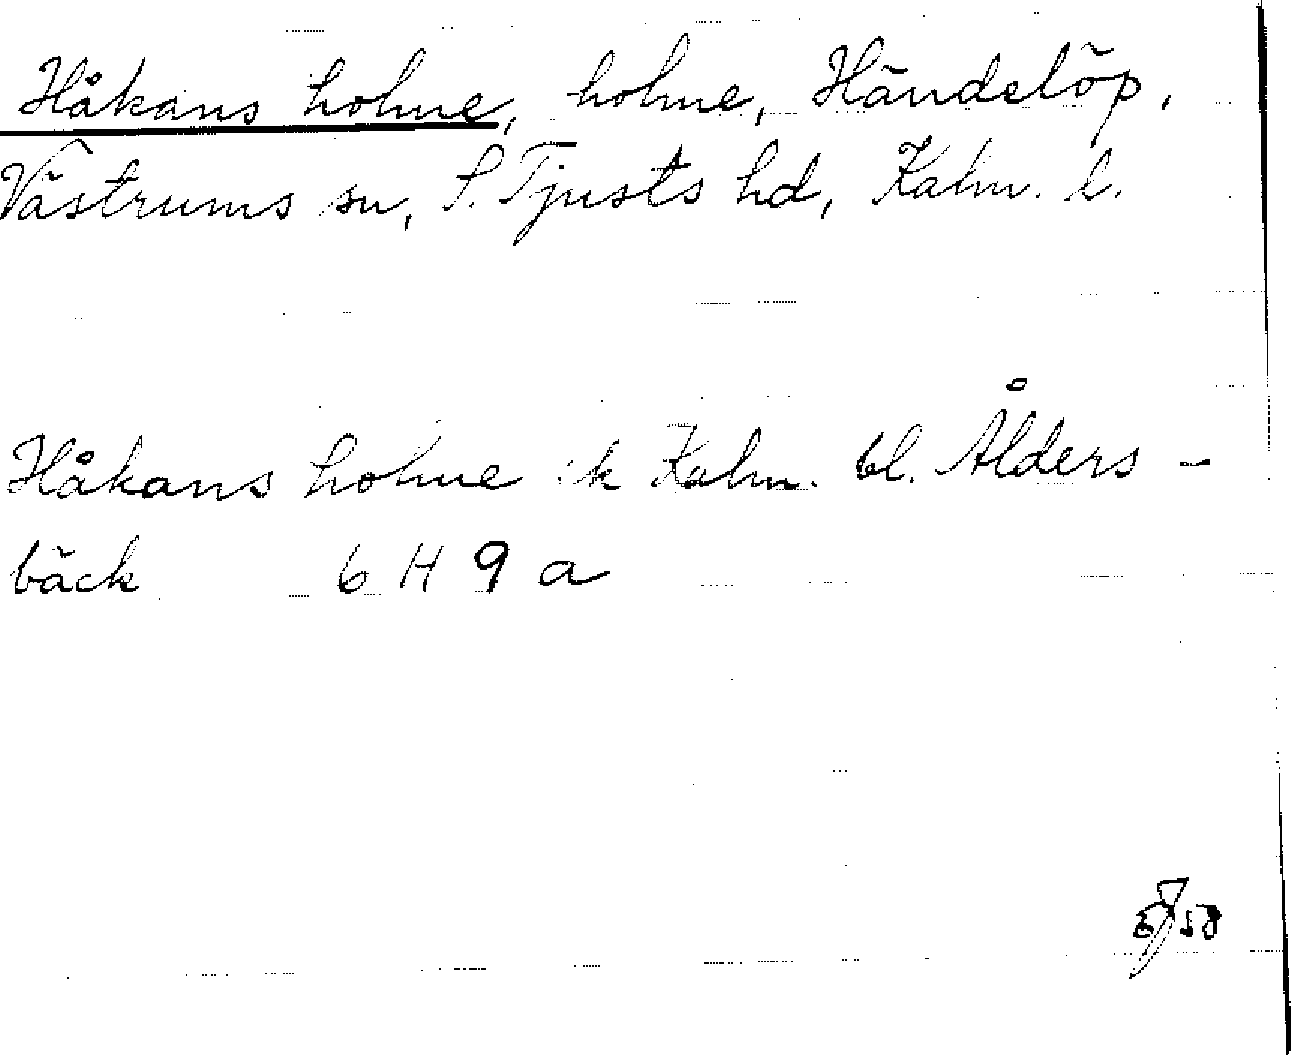 Håkans holme, holme, Händelöp,
Västrums sn, S. Tjusts hd, Kalm. l.
Håkans holme ek Kalm. bl. Ålders-
bäck 6 H 9 a